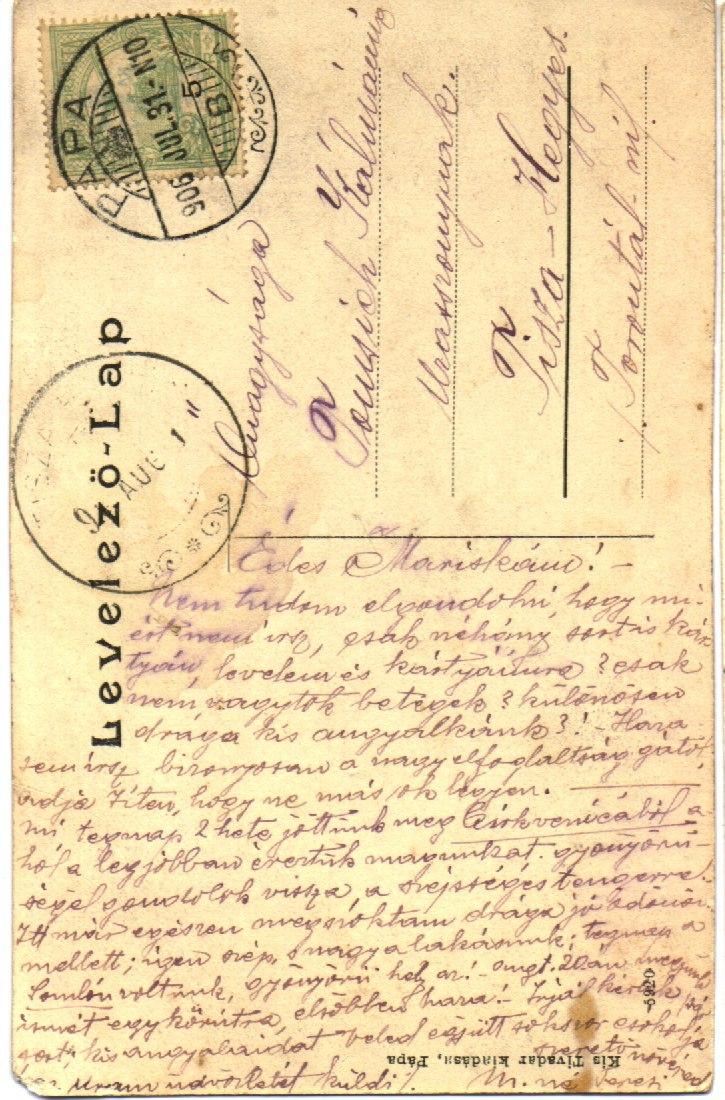 PÁPA
906 JUL. 31. - N10
B 5
Levelező-Lap
AUG 1
Nagysága
Tomsich Kálmánné
Urasszonynak.
Tisza-Hegyes.
Torontál m.
Édes Mariskám! -
Nem tudom elgondolni, hogy mi-
ért nem irsz, csak néhány sort is kár-
tyán, levelem és kártyáimra? csak
nem vagytok betegek? különösen
drága kis angyalkáink?! - Haza
sem irsz bizonyosan a nagy elfoglaltság gátol,
adja Isten, hogy ne más ok legyen.
mi tegnap 2 hete jöttünk meg Cirkvenicából a-
hol a legjobban éreztük magunkat. gyönyörű-
séggel gondolok vissza a szépséges tengerre.
Itt már egészen megszoktam drága jó
mellett; igen szép, s nagy a lakásunk; tegnap a
Somlón voltunk, gyönyörű hely az! - augt. 20án megyünk
ismét egy körútra, elsőbben haza! - Irjál kérlek
sort, kis angyalaidat veled együtt sokszor csókolja
szerető nővéred
uram üdvözletét küldi!
Kis Tivadar kiadása, Pápa
5920